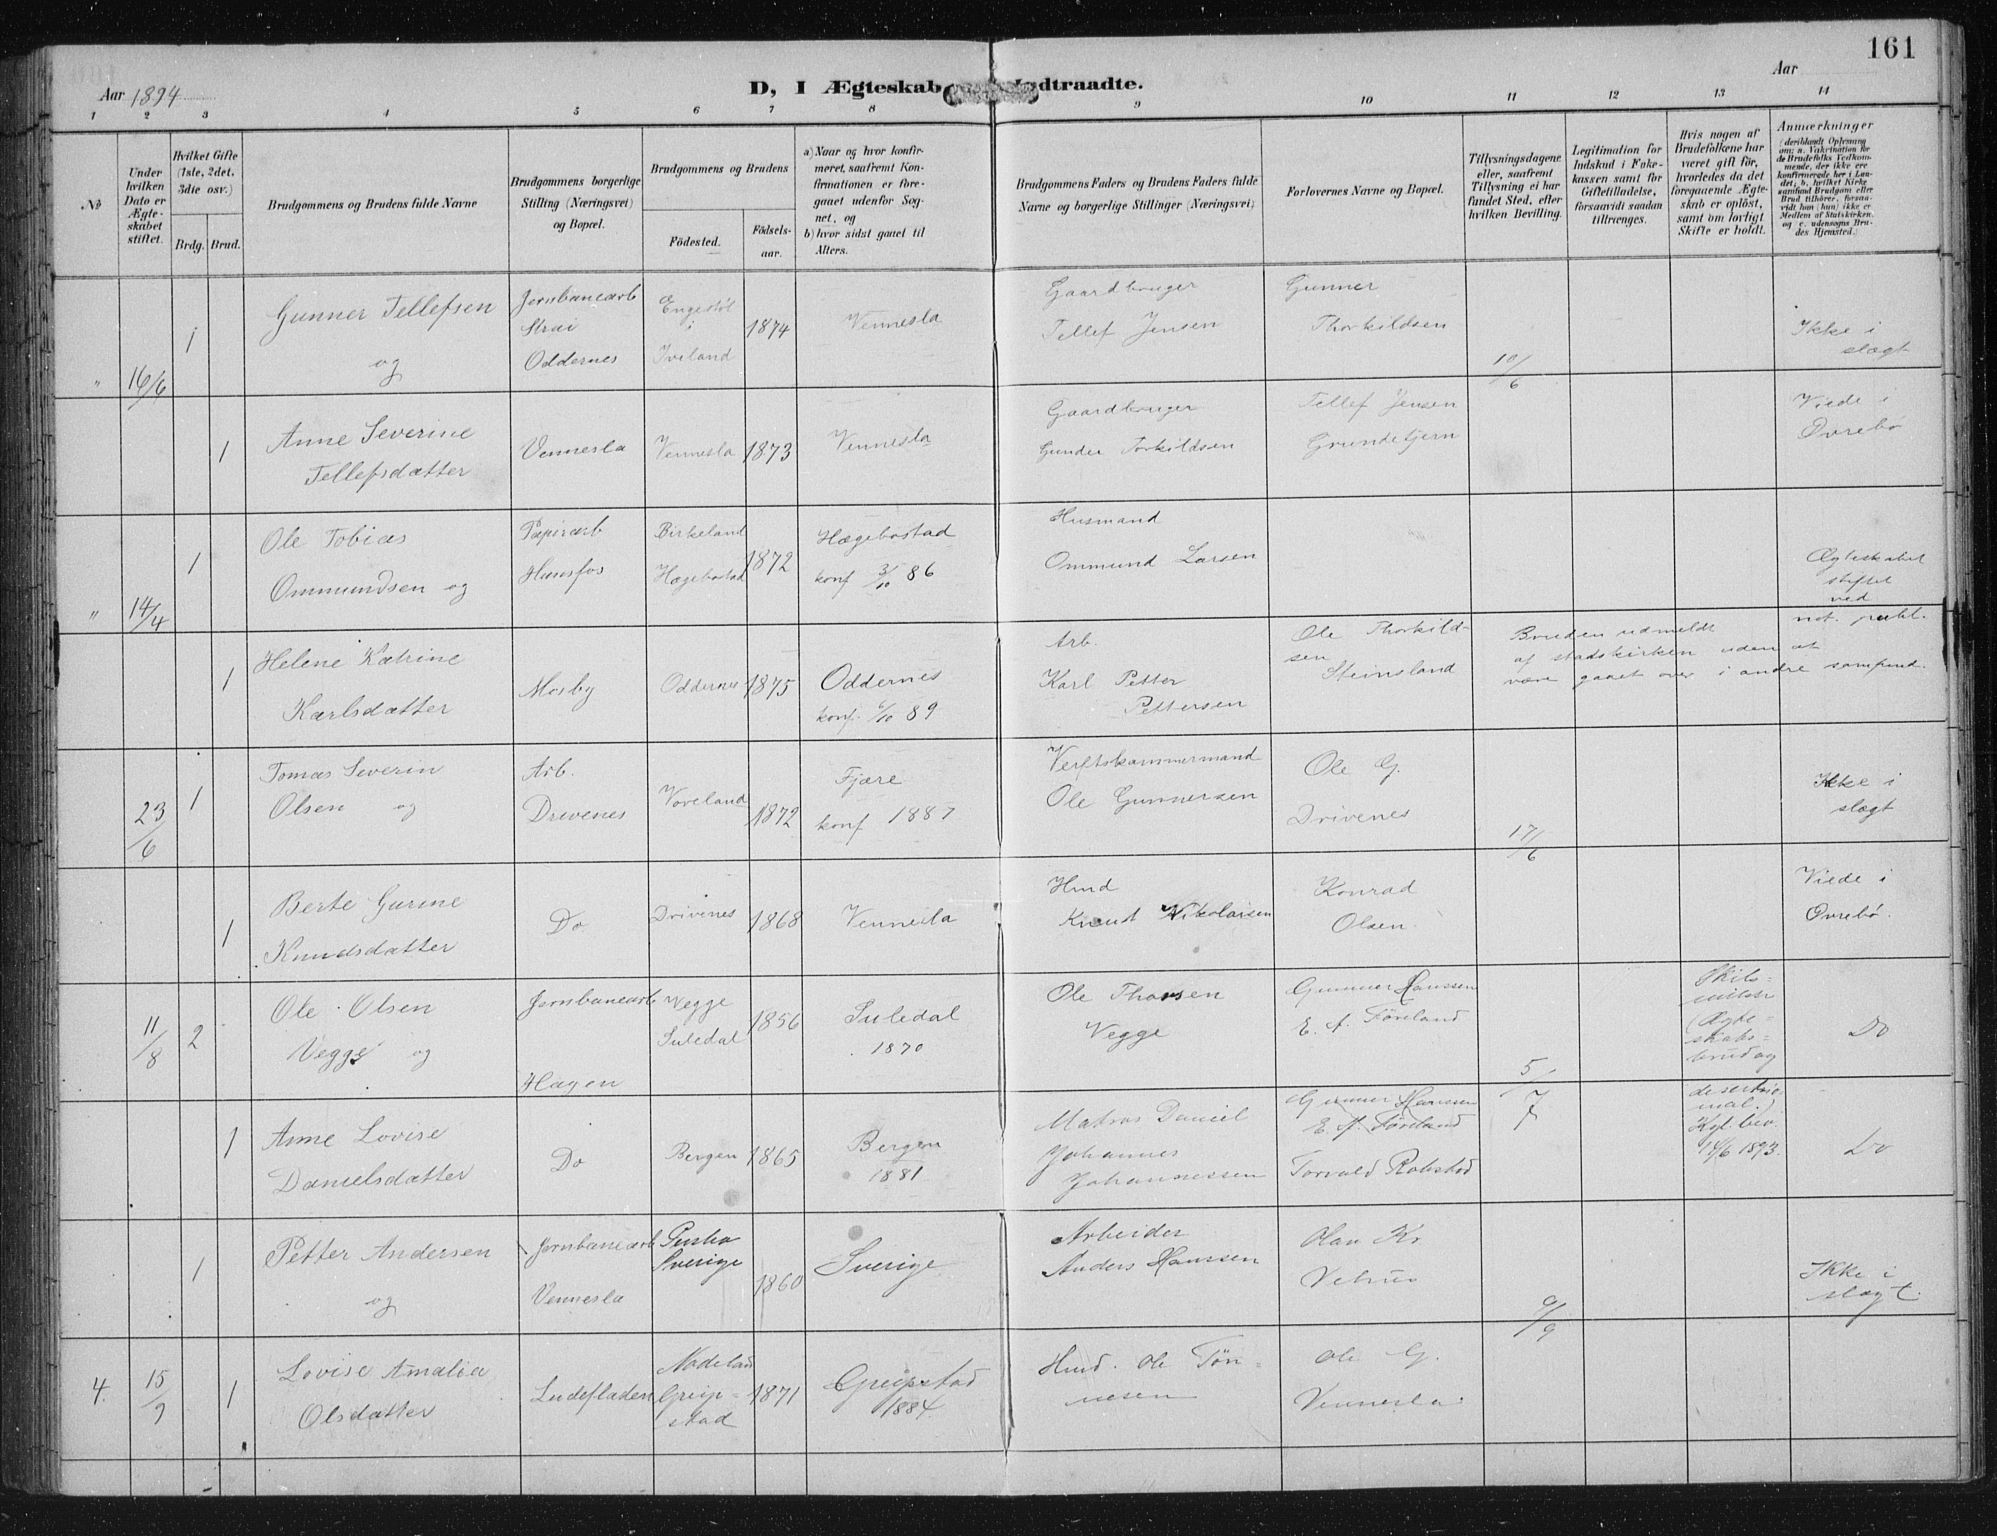 161
Aar 1894
D, I Ægteskab Indtraadte.
Aar
1 2 3 4 5 6 7 8 9 10 11 12 13 14
No
Under hvilken Dato er Ægteskabet stiftet.
Hvilket Gifte (1ste, 2det, 3die osv.)
Brdg. Brud.
Brudgommens og Brudens fulde Navne
Brudgommens borgerlige Stilling (Næringsvei) og Bopæl.
Brudgommens og Brudens
Fødested.
Fødselsaar.
a) Naar og hvor konfirmeret, saafremt Konfirmationen er foregaaet udenfor Sognet, og
b) hvor sidst gaaet til Alters.
Brudgommens Faders og Brudens Faders fulde Navne og borgerlige Stillinger (Næringsvei)
Forlovernes Navne og Bopæl.
Tillysningsdagene eller, saafremt Tillysning ei har fundet Sted, efter hvilken Bevilling.
Legitimation for Indskud i Enkekassen samt for Giftetilladelse, forsaavidt saadan tiltrænges.
Hvis nogen af Brudefolkene har været gift før, hvorledes da det foregaaende Ægteskab er opløst, samt om lovligt Skifte er holdt.
Anmerkninger
(deriblandt Oplysning om: a. Vakcination for de Brudefolks Vedkommende, der ikke ere konfirmerede her i Landet; b. hvilket Kirkesamfund Brudgom eller Brud tilhører, forsaavidt han (hun) ikke er Medlem af Statskirken, og c. udensogns Brudes Hjemsted.)
" 16/6 1
Gunner Tellefsen
og
Jernbanearb
Strai
Oddernes
Engestøl
i
Iveland
1874
Vennesla
Gaardbruger
Tellef Jensen
Gunner
Thorkildsen
10/6
Ikke i
slægt
1
Anne Severine
Tellefsdatter
Vennesla
Vennesla
1873
Vennesla
Gaardbruger
Gunder Torkildsen
Tellef Jensen
Grundetjern
Viede i
Øvrebø
" 14/4 1
Ole Tobias
Ommundsen og
Papirarb
Hunsfos
Birkeland
Hægebostad
1872
Hægebostad
konf 3/10 86
Husmand
Ommund Larsen
Ægteskabet
stiftet
ved
not. publ.
1
Helene Katrine
Karlsdatter
Mosby
Oddernes
1875
Oddernes
konf. 6/10 89
Arb.
Karl Petter
Pettersen
Ole Thorkildsen
Steinsland
Bruden udmeldt
af stadskirken uden at
være gaaet over i andre samfund.
23/6 1
Tomas Severin
Olsen og
Arb.
Drivenes
Voreland
1872
Fjære
konf 1887
Verftskommermand
Ole Gunnersen
Ole G.
Drivenes
17/6
Ikke i
slægt
1
Berte Gurine
Knudsdatter
Do
Drivenes
1868
Vennesla
Hmd
Knud Nikolaisen
Konrad
Olsen
Viede i
Øvrebø.
11/8 2
Ole Olsen
Vegge og
Jernbanearb
Hagen
Vegge
Suledal
1856
Suledal
1870
Ole Thorsen
Vegge
Gunner Hanssen
E. A. Føreland
5/7
Skilsmisse
(Ægteskabsbrud og
desertio
mal.)
Kgl. bev.
14/6 1893.
Do
1
Anne Lovise
Danielsdatter
Do
Bergen
1865
Bergen
1881
Matros Daniel
Johannes
Johannessen
Gunner Hanssen
E. A. Føreland
Torvald Robstad
Do
1
Petter Andersen
og
Jernbanearb
Vennesla
Sverige
1860
Sverige
Arbeider
Anders Hanssen
Olav Kr
9/9
Ikke i
slægt.
4. 15/9 1
Lovise Amalia
Olsdatter
Ludefladen
Nodeland
Greipstad
1871
Greipstad
1884
Hmd. Ole Tønnesen
Ole G.
Vennesla